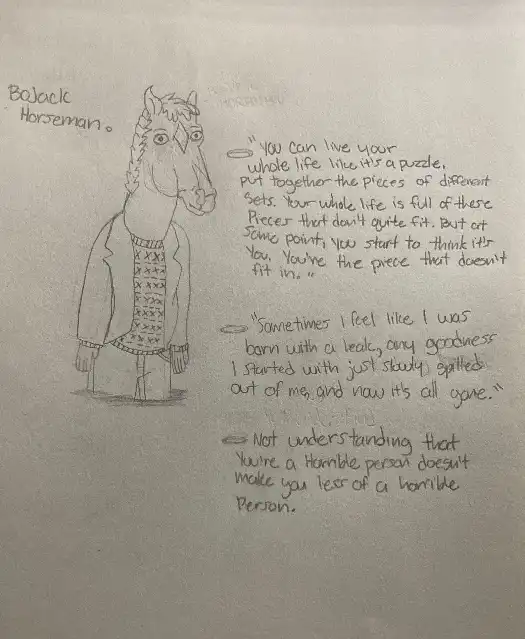 BoJack
Horseman.
"You can live your
whole life like it's a puzzle.
put together the pieces of different
sets. Your whole life is full of these
Pieces that don't quite fit. But at
some point, you start to think it's
You. You're the piece that doesn't
fit in."
"Sometimes I feel like I was
born with a leak, any goodness
I started with just slowly spilled
out of me, and now it's all gone."
Not understanding that
You're a Horrible person doesn't
make you less of a horrible
Person.